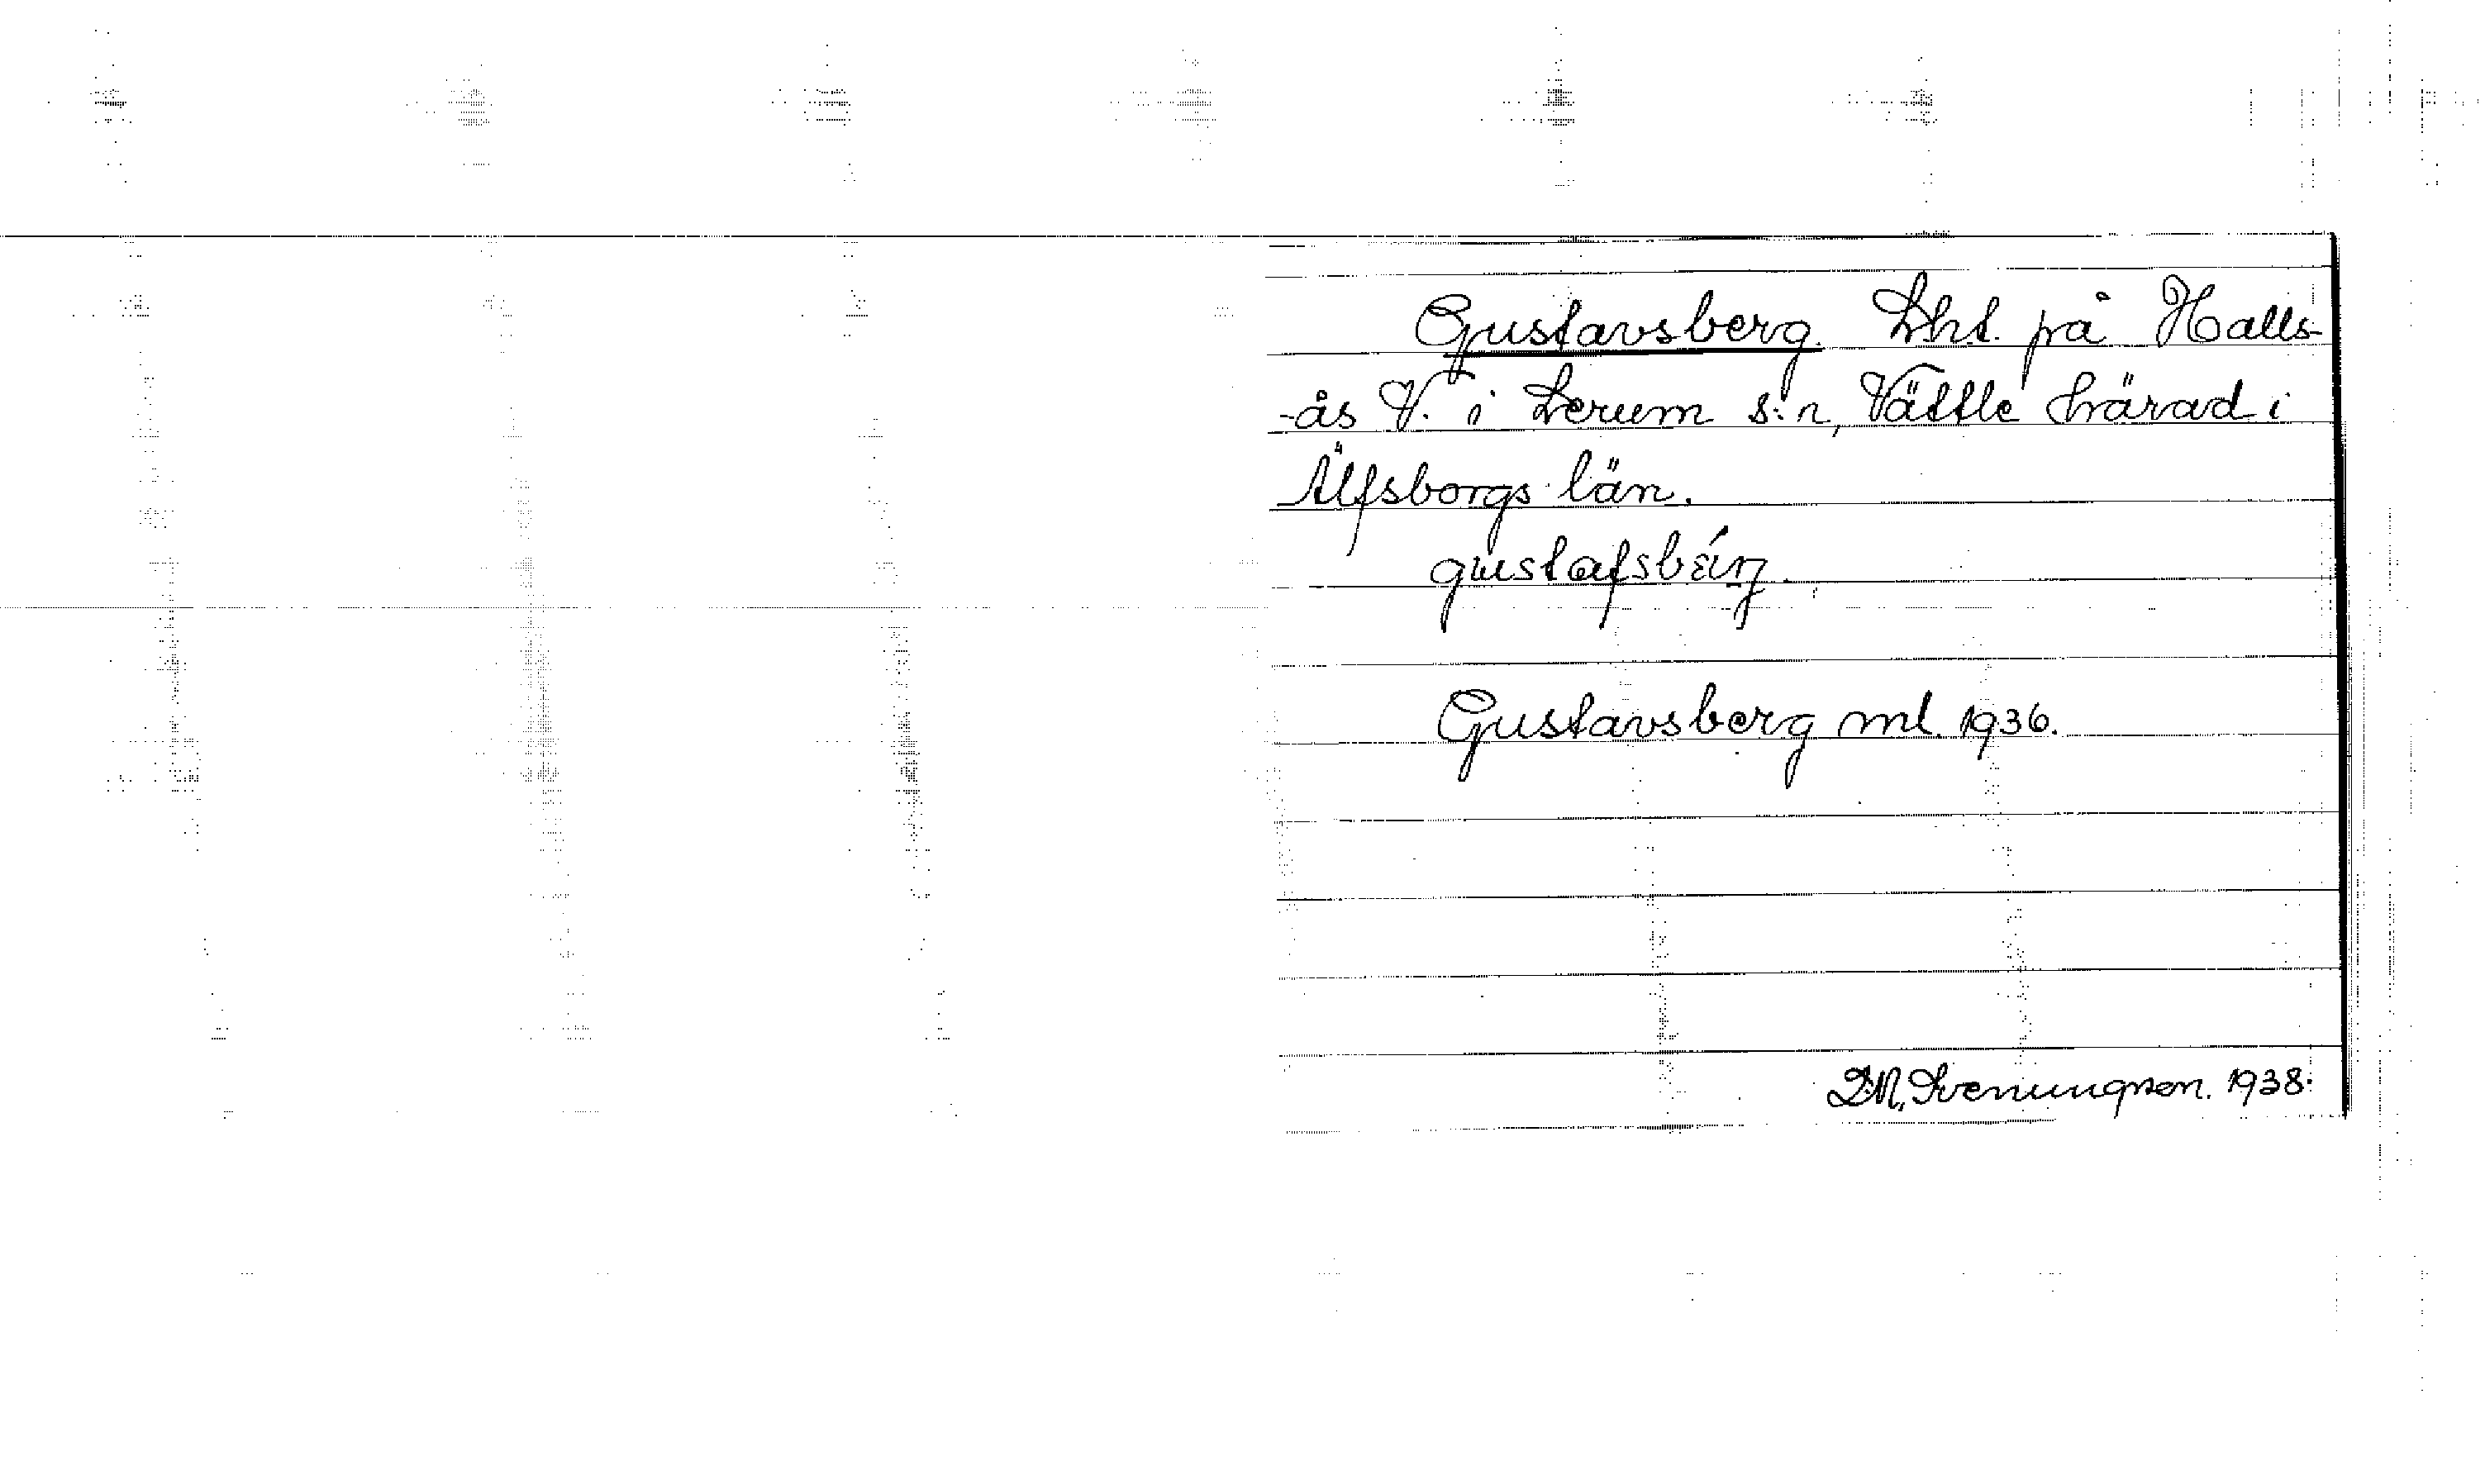 Gustavsberg. Lht. på Halls-
-ås V. i Lerum s:n, Vättle härad i
Älfsborgs län.
gustafsbérj.
Gustavsberg ml. 1936.
D.N. Svenungsson. 1938.